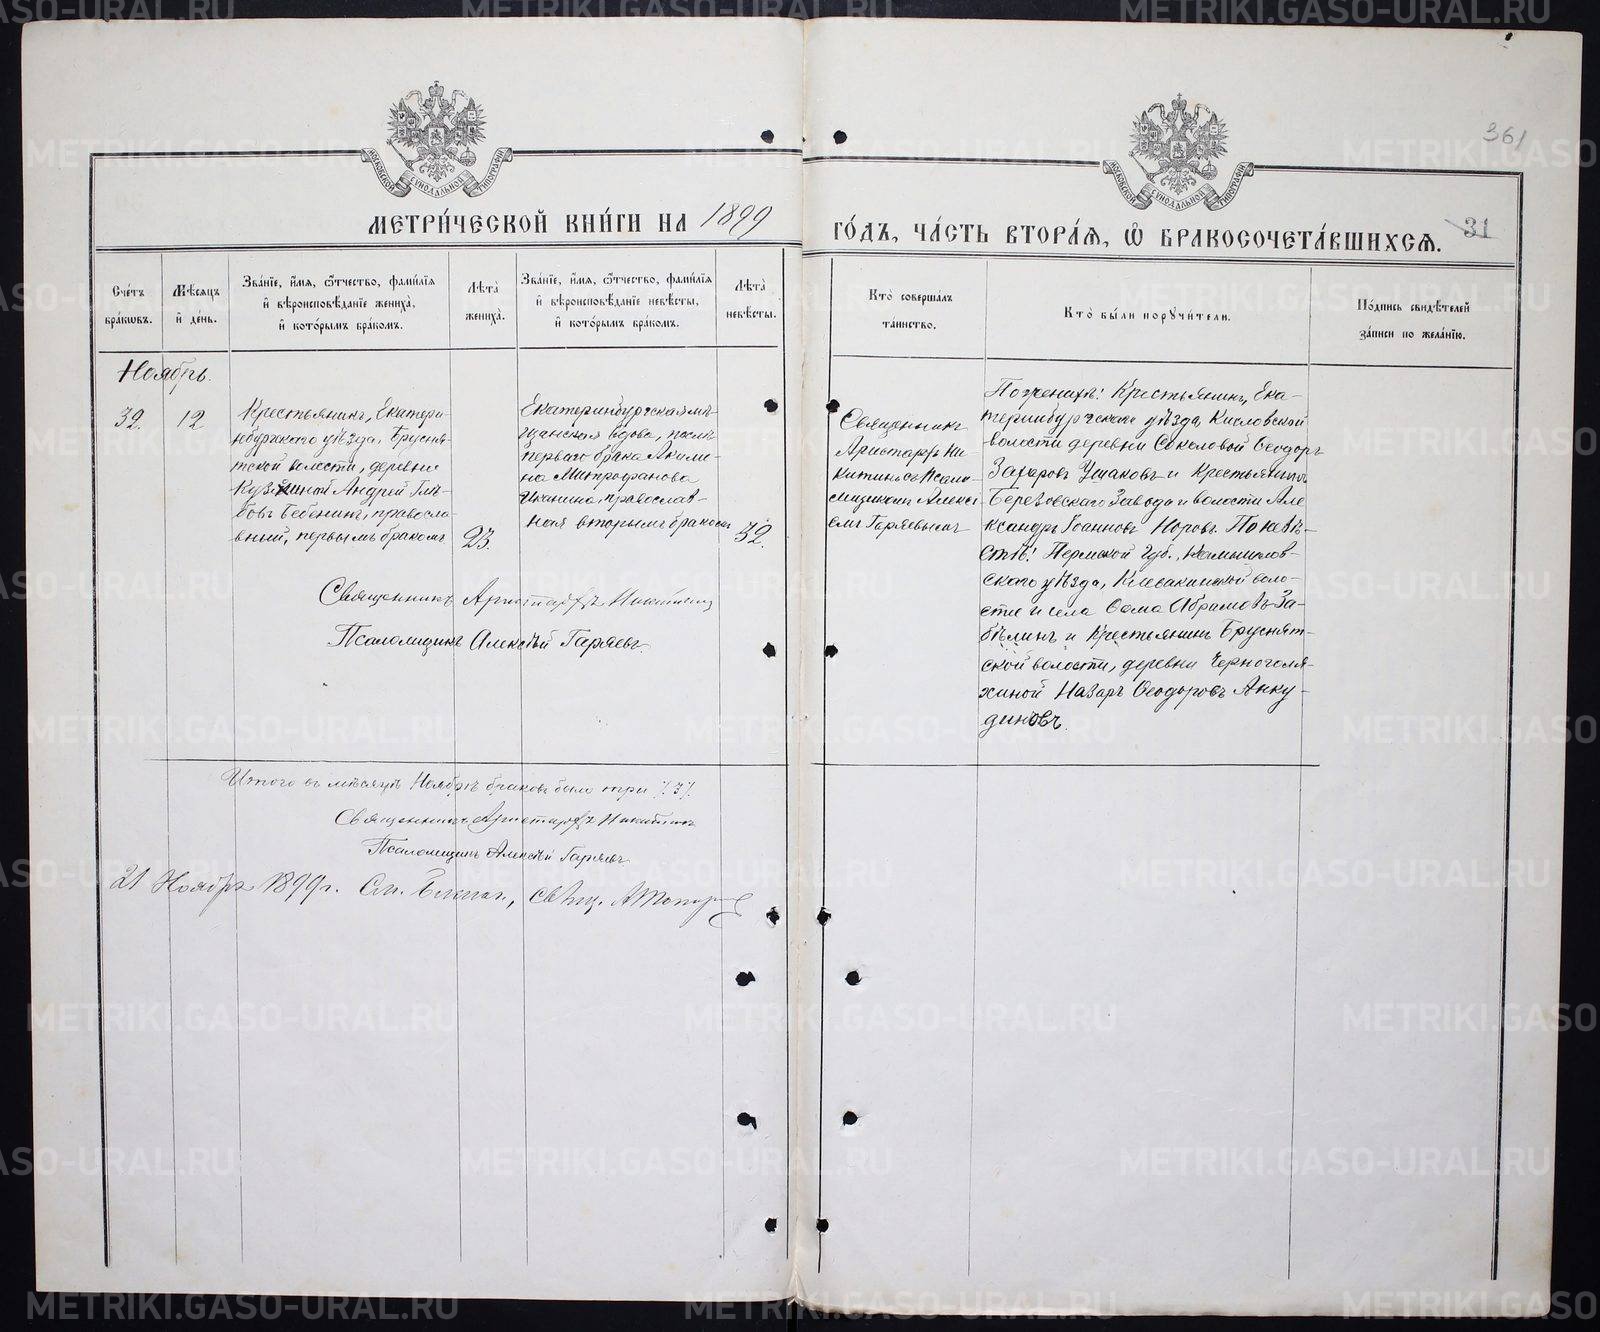 361
МОСКОВСКОЙ СѴНОДАЛЬНОЙ ТИПОГРАФІИ
МОСКОВСКОЙ СѴНОДАЛЬНОЙ ТИПОГРАФІИ
МЕТРИ́ЧЕСКОЙ КНИ́ГИ НА 1899
ГО́ДЪ, ЧА́СТЬ ВТОРА́Ѧ, Ѽ БРАКОСОЧЕТА́ВШИХСѦ.
31
Сче́тъ бра́ковъ.
Мѣ́сѧцъ и҆ де́нь.
Зва́нїе, и҆́мѧ, ѻ҆́тчество, фамі́лїѧ и҆ вѣроисповѣ́данїе жениха̀, и҆ кото́рымъ бра́комъ.
Лѣ́та жениха̀.
Зва́нїе, и҆́мѧ, ѻ҆́тчество, фамі́лїѧ и҆ вѣроисповѣ́данїе невѣ́сты, и҆ кото́рымъ бра́комъ.
Лѣ́та невѣ́сты.
Кто̀ соверша́лъ та́инство.
Кто̀ бы́ли порꙋчи́тели.
По́дпись свидѣ́телей за́писи по жела́нїю.
Ноябрь.
32.
12
Крестьянинъ, Екатери-
нбургскаго уѣзда, Брусня-
тской волости, деревни
Кузиной Андрей Глѣ-
бовъ Бебенинъ, правосла
вный, первымъ бракомъ
23.
Екатеринбургская мѣ-
щанская вдова, послѣ
перваго брака Акили-
на Митрофанова
Иканина, православ-
ная вторымъ бракомъ
32.
Священникъ
Аристархъ Ни-
китинъ съ Псало-
мщикомъ Алексѣ
емъ Гаряевымъ
По женихѣ: Крестьянинъ, Ека-
теринбургскаго уѣзда, Кисловской
волости деревни Соколовой Ѳеодоръ
Захаровъ Ушаковъ и Крестьянинъ
Березовскаго Завода и волости Але
ксандръ Іоанновъ Норовъ. По невѣ-
стѣ: Пермской губ., Камышлов-
скаго уѣзда, Клевакинской воло-
сти и села Ѳома Абрамовъ За-
бѣлинъ и Крестьянинъ Бруснят-
ской волости, деревни Черноголя-
хиной Назаръ Ѳеодоровъ Анку-
диновъ.
Священникъ Аристархъ Никитинъ
Псаломщикъ Алексѣй Гаряевъ.
Итого въ мѣсяцѣ Ноябрѣ браковъ было три /.3/.
Священникъ Аристархъ Никитинъ
Псаломщикъ Алексѣй Гаряевъ
21 Ноября 1899 г. См. Благоч., свящ.
METRIKI.GASO-URAL.RU